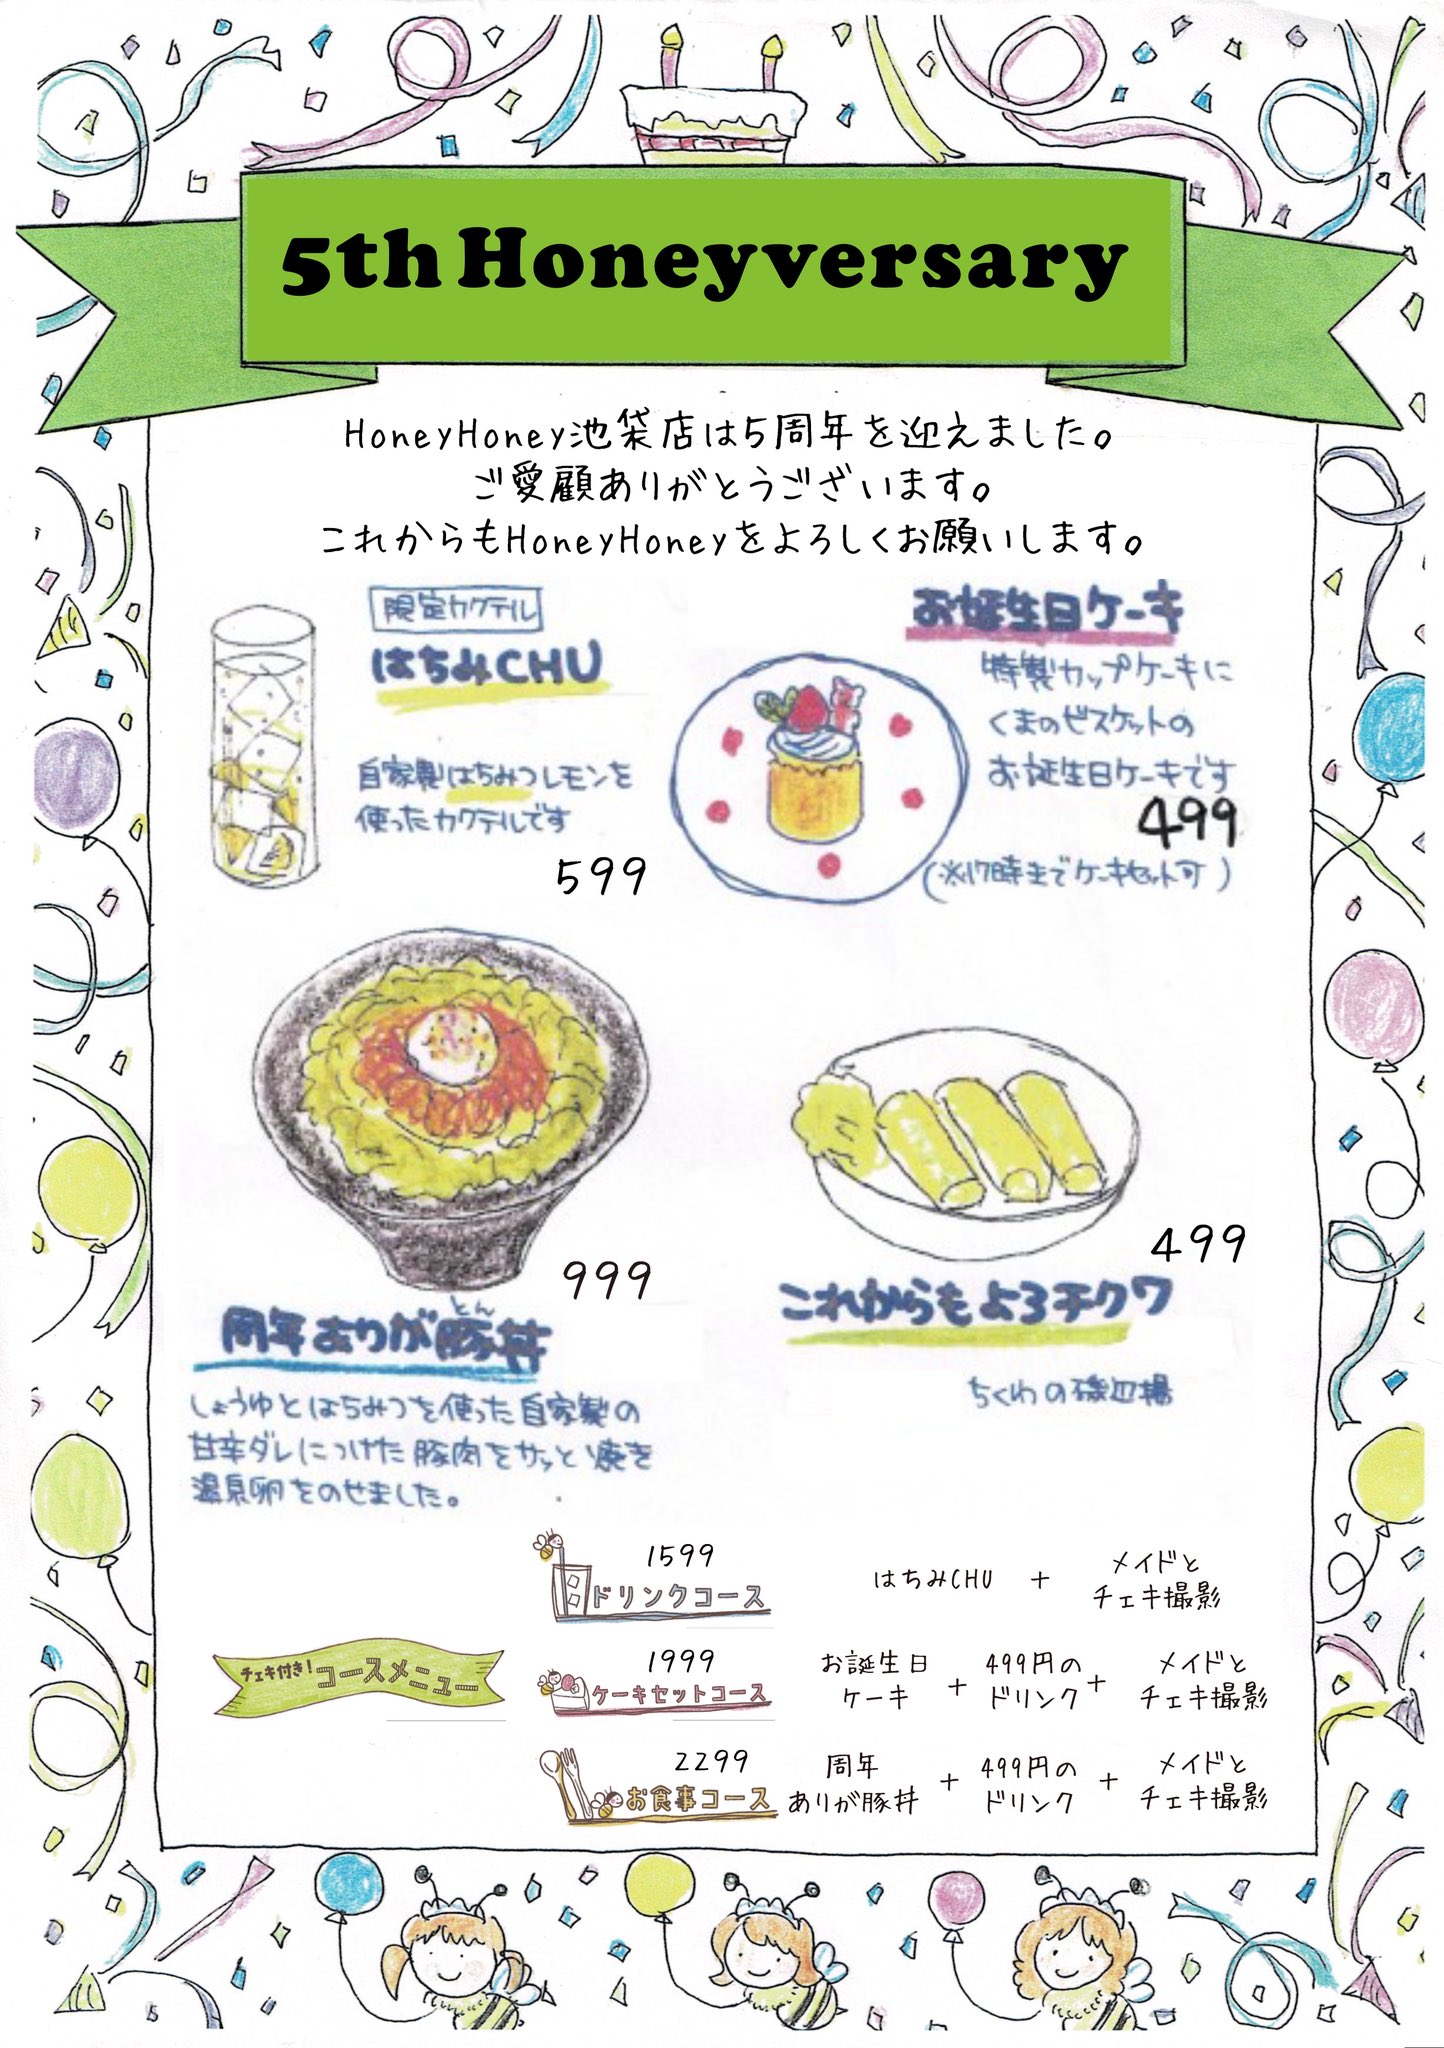 5th Honeyversary
HoneyHoney池袋店は5周年を迎えました。
ご愛顧ありがとうございます。
これからもHoneyHoneyをよろしくお願いします。
限定カクテル
はちみCHU
自家製はちみつレモンを
使ったカクテルです
599
お誕生日ケーキ
特製カップケーキに
くまのビスケットの
お誕生日ケーキです
499
(※17時までケーキセット可)
999
周年ありが豚丼
とん
しょうゆとはちみつを使った自家製の
甘辛ダレにつけた豚肉をサッと焼き
温泉卵をのせました。
499
これからもよろチクワ
ちくわの磯辺揚
チェキ付き！コースメニュー
1599
ドリンクコース
はちみCHU + メイドと
チェキ撮影
1999
ケーキセットコース
お誕生日
ケーキ + 499円の
ドリンク + メイドと
チェキ撮影
2299
お食事コース
周年
ありが豚丼 + 499円の
ドリンク + メイドと
チェキ撮影